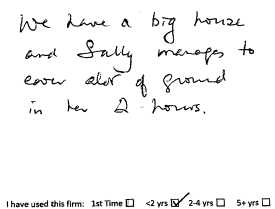 We have a big house
and Sally manages to
cover alot of ground
in her 2 hours.
I have used this firm: 1st Time ☐ <2 yrs ☑ 2-4 yrs ☐ 5+ yrs ☐